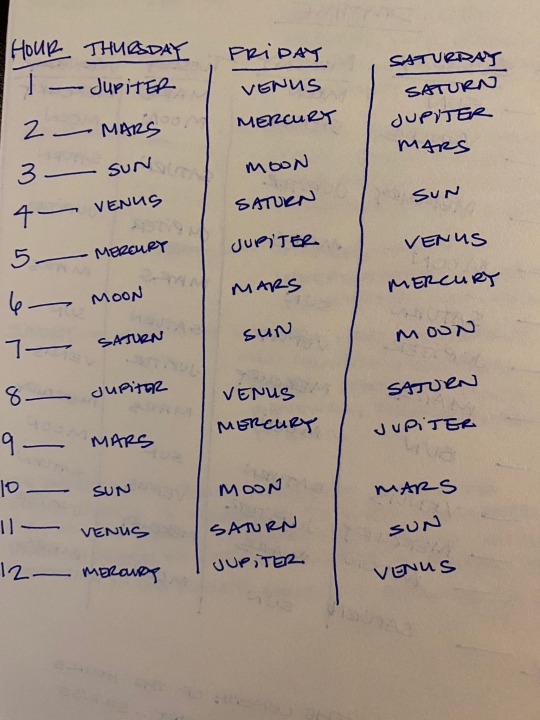 HOUR THURSDAY FRIDAY SATURDAY
1 — JUPITER VENUS SATURN
2 — MARS MERCURY JUPITER
3 — SUN MOON MARS
4 — VENUS SATURN SUN
5 — MERCURY JUPITER VENUS
6 — MOON MARS MERCURY
7 — SATURN SUN MOON
8 — JUPITER VENUS SATURN
9 — MARS MERCURY JUPITER
10 — SUN MOON MARS
11 — VENUS SATURN SUN
12 — MERCURY JUPITER VENUS